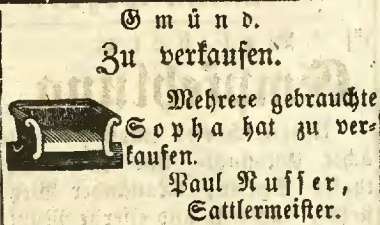 Gmünd.
Zu verkaufen.
Mehrere gebrauchte
Sopha hat zu ver-
kaufen.
Paul Nusser,
Sattlermeister.